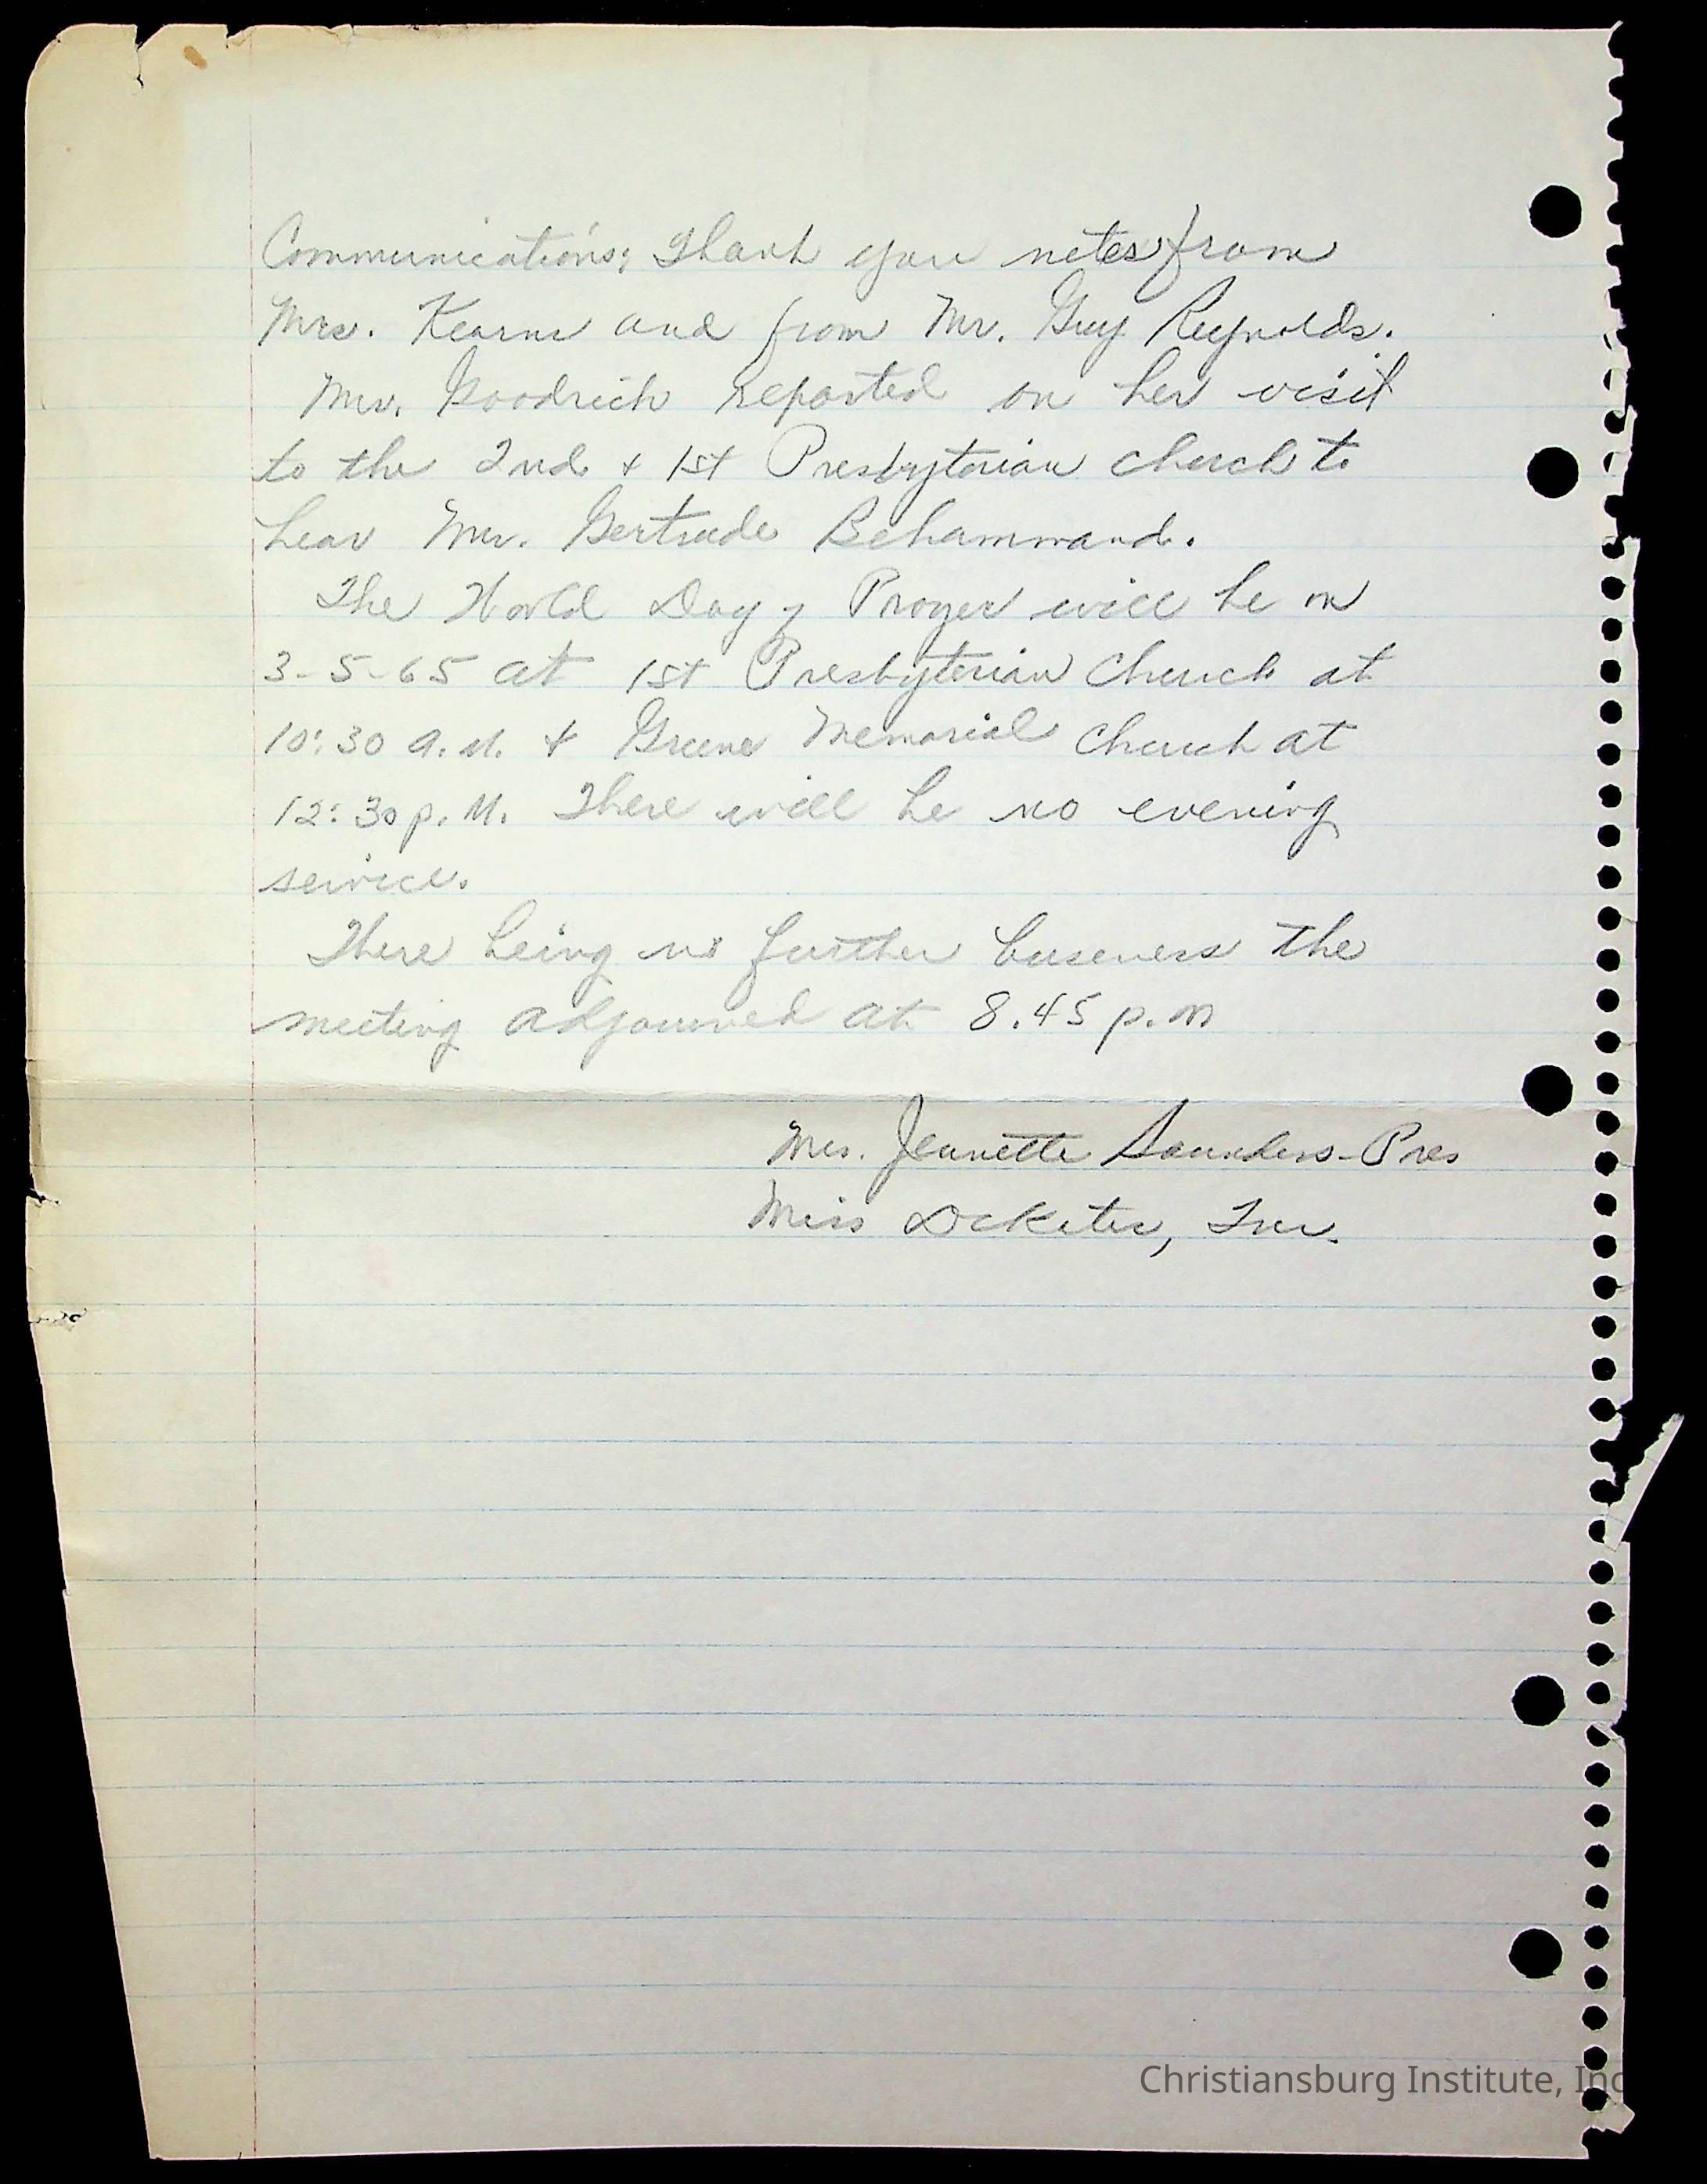 Communications: Thank you notes from
Mrs. Kearns and from Mr. Guy Reynolds.
Mrs. Goodrich reported on her visit
to the 2nd. & 1st Presbyterian church to
hear Mrs. Gertrude Behammand.
The World Day of Prayer will be on
3-5-65 at 1st Presbyterian Church at
10:30 A.M. & Greene Memorial Church at
12:30 p.M. There will be no evening
service.
There being no further business the
meeting adjourned at 8.45 p.m
Mrs. Jeanette Saunders-Pres
Miss
Christiansburg Institute, Inc